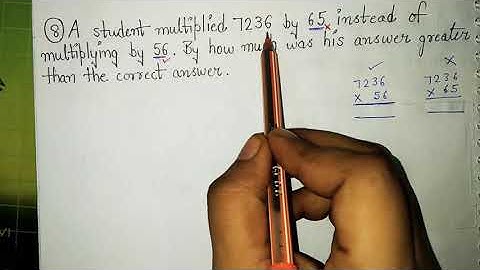 ⑧ A student multiplied 7236 by 65 instead of
multiplying by 56. By how much was his answer greater
than the correct answer.
✓ ×
7236 7236
× 56 × 65